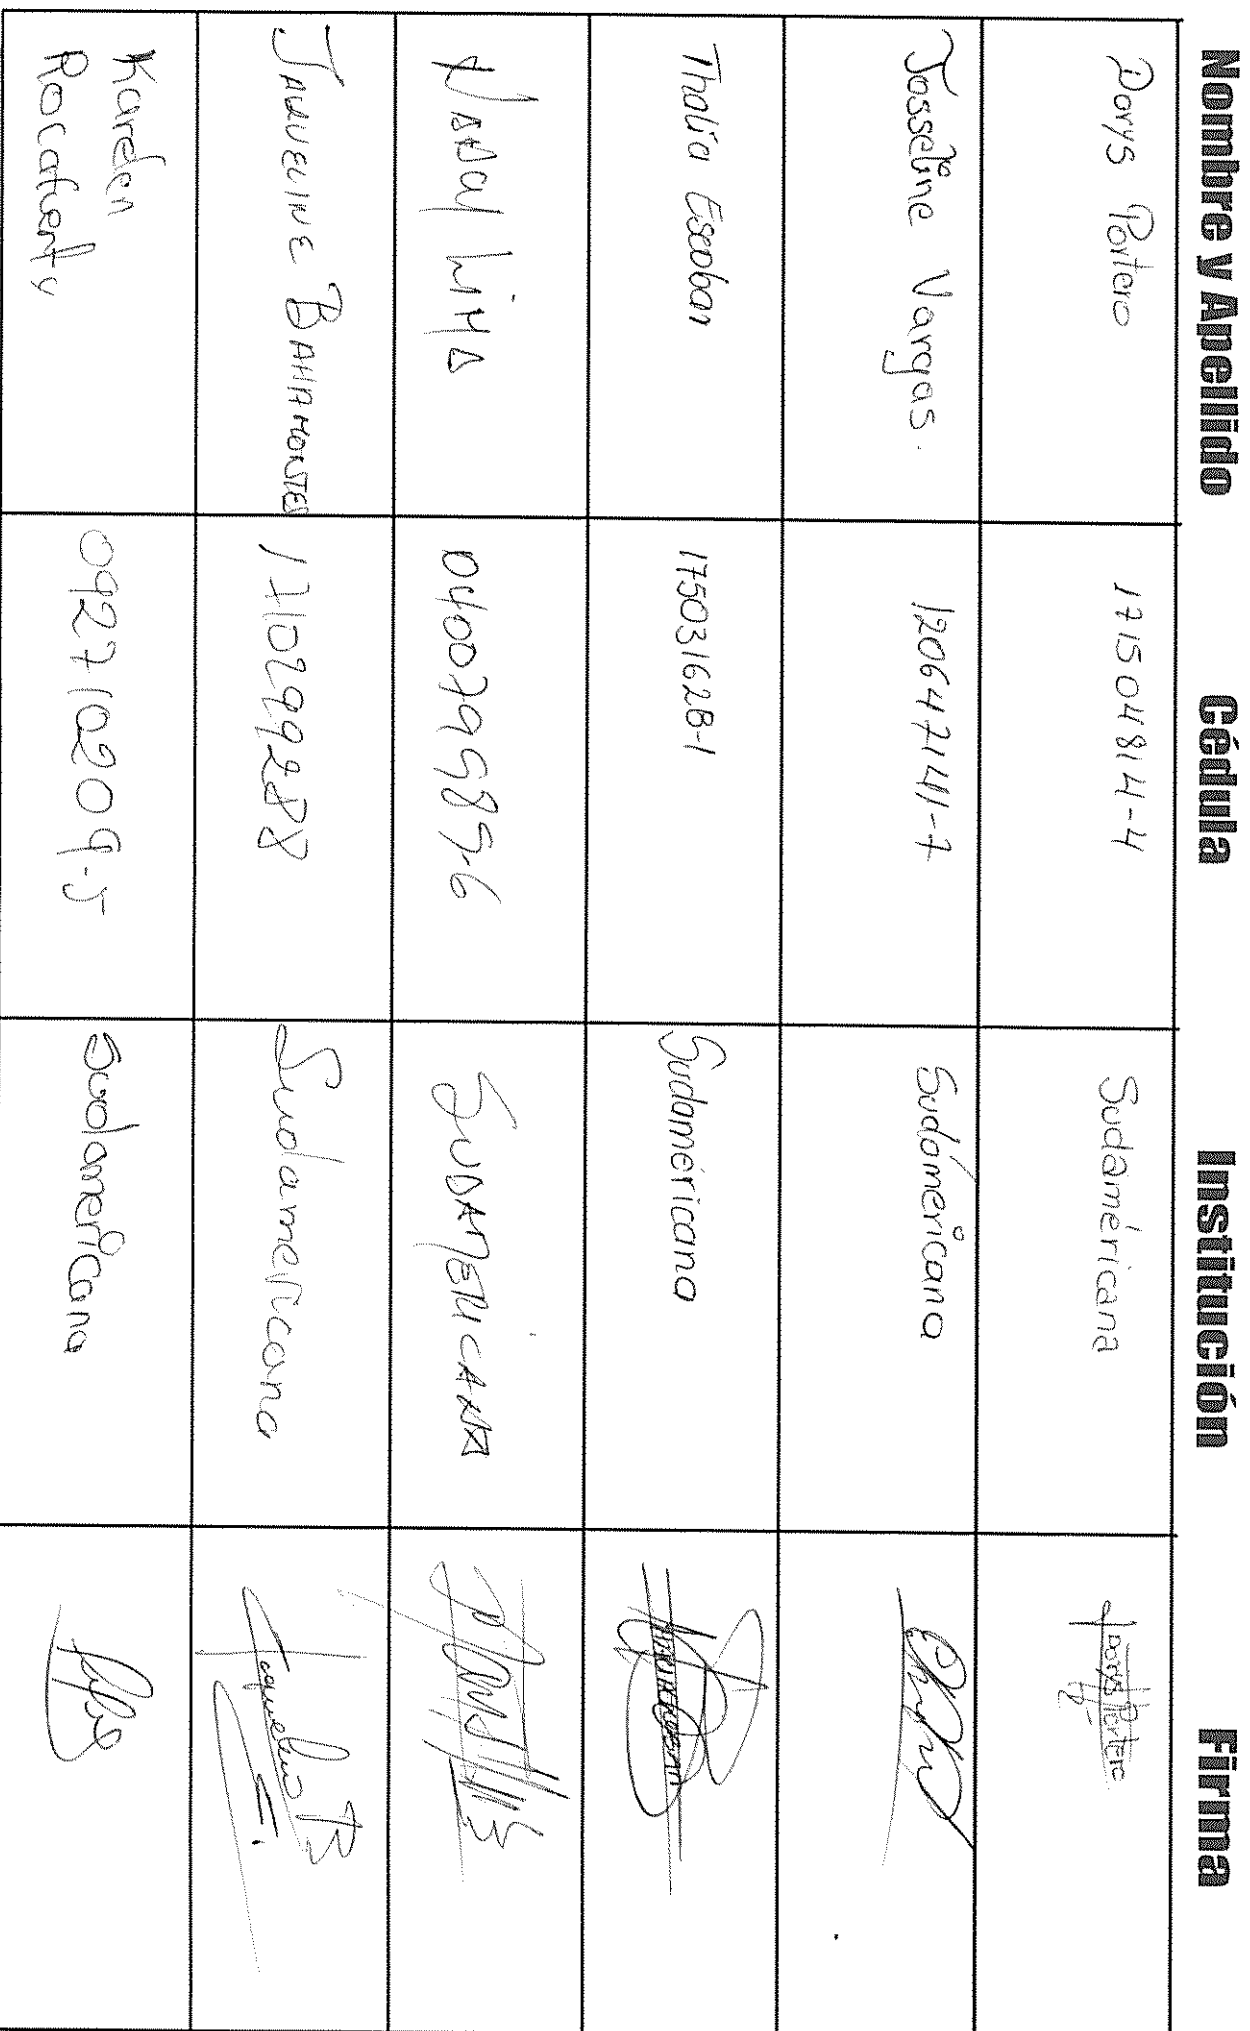 Nombre y Apellido Cédula Institución Firma
Dorys Portero 171504814-4 Sudaméricana Dorys Portero
Josseline Vargas. 120647141-7 Sudaméricano
Thalia Escobar 175031628-1 Sudaméricano
Lima SUDAMERICANA
JAQUELINE BAHAMONTES 1710299288 Sudamericana Jaqueline B
Karelen
Rocafuerty 092710209-5 Sudamericana